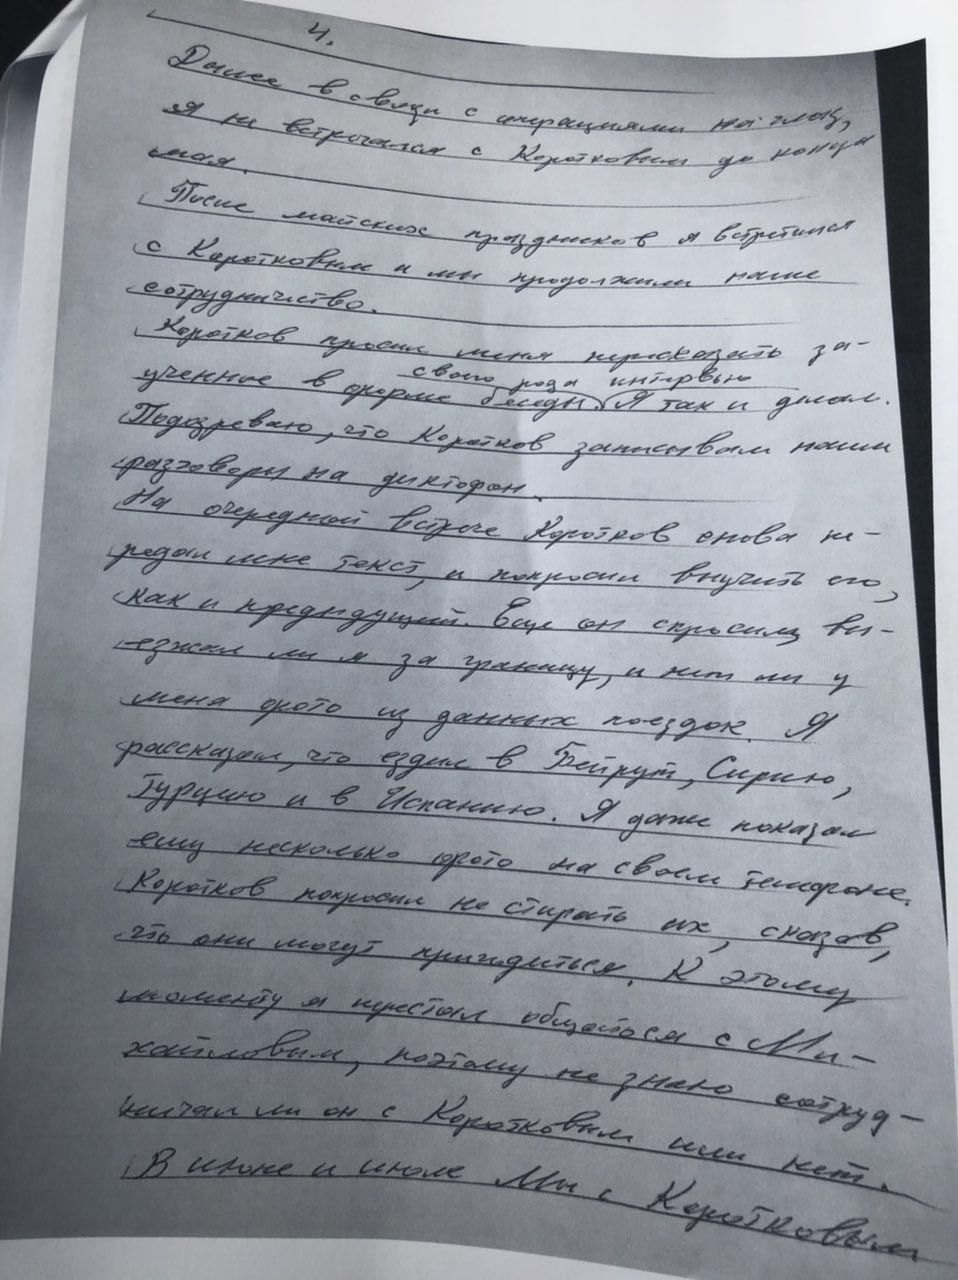 4.
Далее в связи с операциями на глаз,
я не встречался с Коротковым до конца
мая.
После майских праздников я встретился
с Коротковым и мы продолжили наше
сотрудничество.
Коротков просил меня пересказать за-
своего рода интервью
ученное в форме беседы. Я так и делал.
Подозреваю, что Коротков записывал наши
разговоры на диктофон.
На очередной встрече Коротков снова пе-
редал мне текст, и попросил выучить его,
как и предыдущий. Еще он спросил, вы-
езжал ли я за границу, и нет ли у
меня фото из данных поездок. Я
рассказал, что ездил в Бейрут, Сирию,
Турцию и в Испанию. Я даже показал
ему несколько фото на своем телефоне.
Коротков попросил не стирать их, сказав,
что они могут пригодиться. К этому
моменту я перестал общаться с Ми-
хайловым, поэтому не знаю сотруд-
ничал ли он с Коротковым или нет.
В июне и июле мы с Коротковым